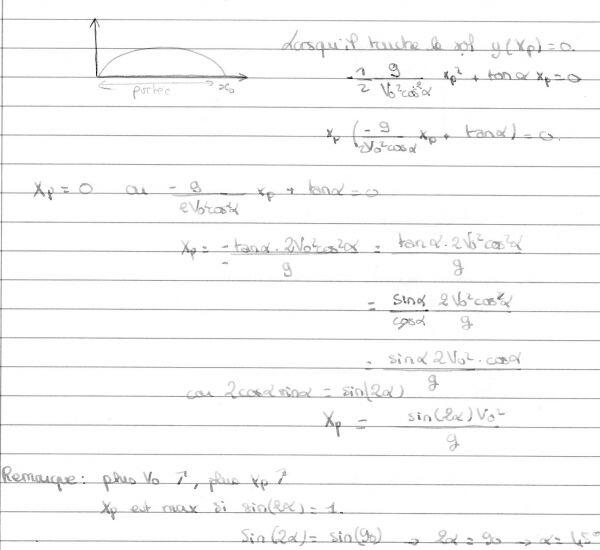 Lorsqu'il touche le sol y(xp)=0.
-1/2 g/(V₀²cos²α) xp² + tanα xp = 0
portée x₀
xp (-g/(2V₀²cosα) xp + tanα) = 0.
Xp = 0 ou -g/(2V₀²cos²α) xp + tanα = 0
Xp = -tanα · 2V₀²cos²α/-g = tanα · 2V₀²cos²α/g
= sinα/cosα 2V₀²cos²α/g
= sinα 2V₀² · cosα/g
car 2cosα sinα = sin(2α)
Xp = sin(2α) V₀²/g
Remarque : plus V₀ ↑, plus xp ↑
Xp est max si sin(2α) = 1.
Sin(2α) = sin(90) → 2α = 90 → α = 45°